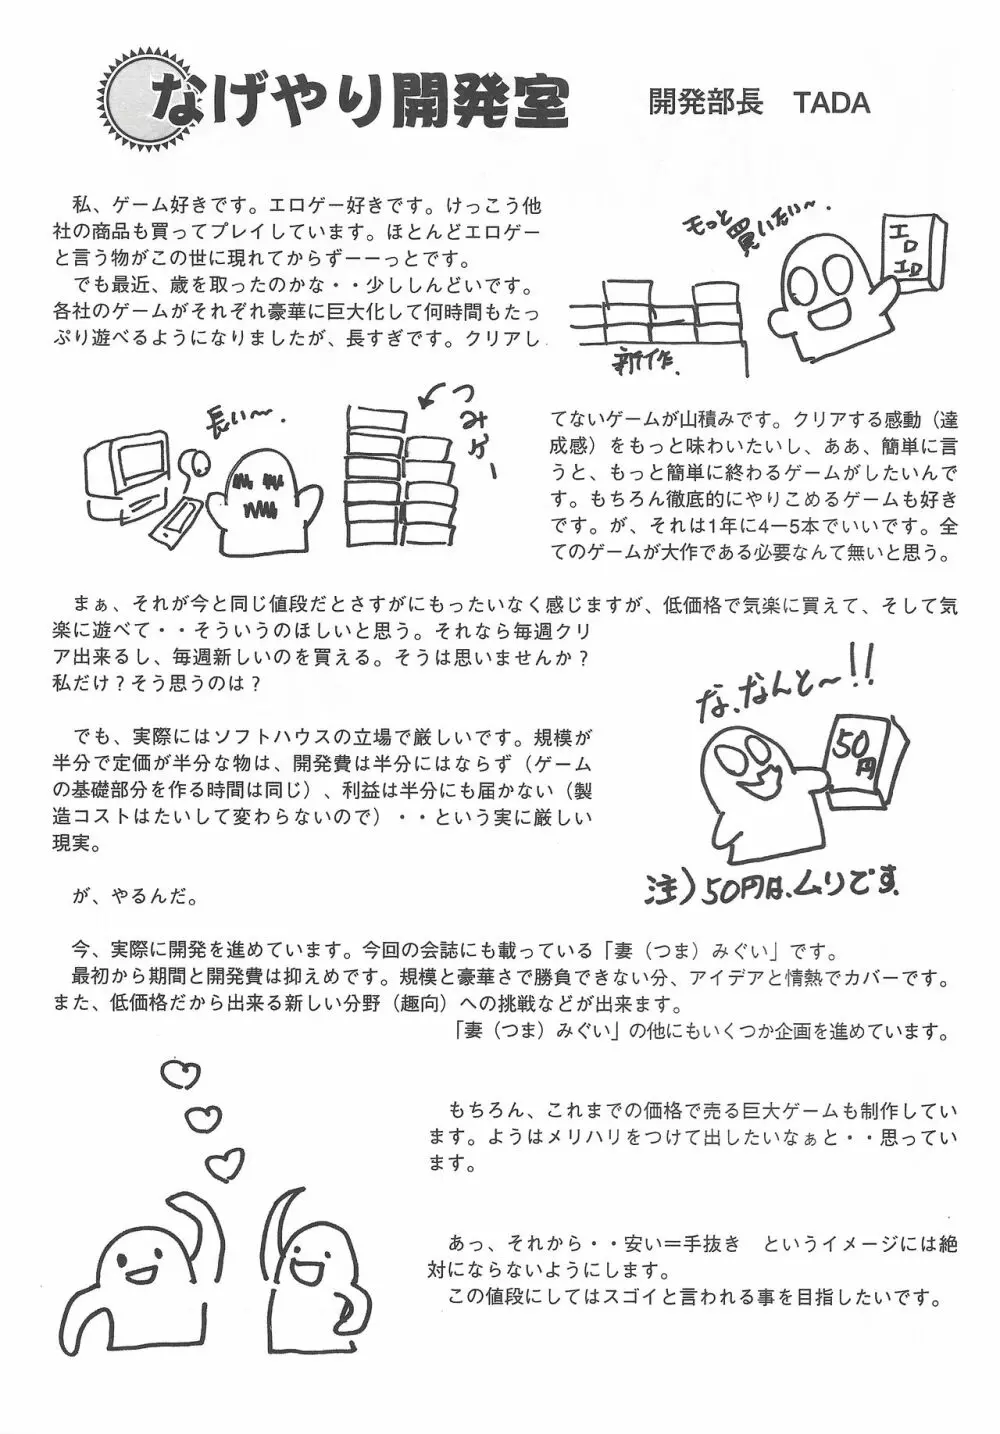 なげやり開発室
開発部長　TADA
私、ゲーム好きです。エロゲー好きです。けっこう他
社の商品も買ってプレイしています。ほとんどエロゲー
と言う物がこの世に現れてからずーーっとです。
でも最近、歳を取ったのかな・・少ししんどいです。
各社のゲームがそれぞれ豪華に巨大化して何時間もたっ
ぷり遊べるようになりましたが、長すぎです。クリアし
モっと
買いたい〜.
エロ
エロ
新作.
長い〜.
つみゲー
てないゲームが山積みです。クリアする感動（達
成感）をもっと味わいたいし、ああ、簡単に言
うと、もっと簡単に終わるゲームがしたいんで
す。もちろん徹底的にやりこめるゲームも好き
です。が、それは1年に4ー5本でいいです。全
てのゲームが大作である必要なんて無いと思う。
まぁ、それが今と同じ値段だとさすがにもったいなく感じますが、低価格で気楽に買えて、そして気
楽に遊べて・・そういうのほしいと思う。それなら毎週クリ
ア出来るし、毎週新しいのを買える。そうは思いませんか？
私だけ？そう思うのは？
でも、実際にはソフトハウスの立場で厳しいです。規模が
半分で定価が半分な物は、開発費は半分にはならず（ゲーム
の基礎部分を作る時間は同じ）、利益は半分にも届かない（製
造コストはたいして変わらないので）・・という実に厳しい
現実。
な、なんと〜!!
50円
注）50円は、ムリです.
が、やるんだ。
今、実際に開発を進めています。今回の会誌にも載っている「妻（つま）みぐい」です。
最初から期間と開発費は抑えめです。規模と豪華さで勝負できない分、アイデアと情熱でカバーです。
また、低価格だから出来る新しい分野（趣向）への挑戦などが出来ます。
「妻（つま）みぐい」の他にもいくつか企画を進めています。
もちろん、これまでの価格で売る巨大ゲームも制作してい
ます。ようはメリハリをつけて出したいなぁと・・思ってい
ます。
あっ、それから・・安い＝手抜き　というイメージには絶
対にならないようにします。
この値段にしてはスゴイと言われる事を目指したいです。